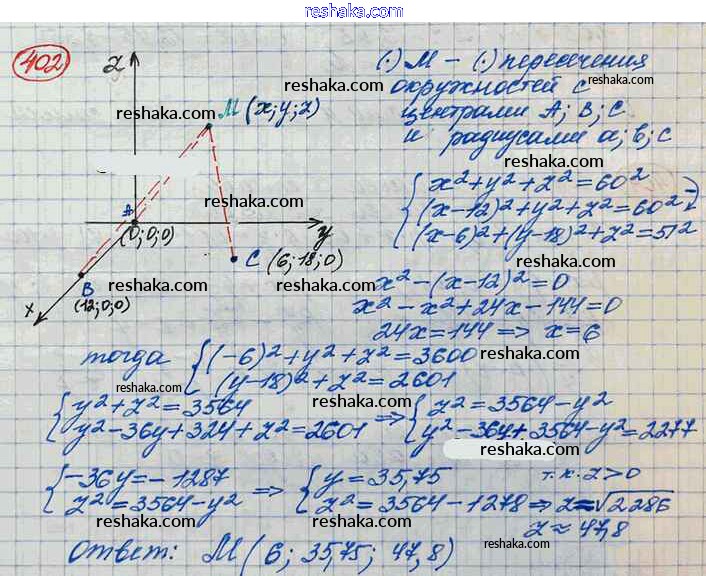 www.reshaka.com
402
z
M (x; y; z)
A
(0; 0; 0)
y
C (6; 18; 0)
B
(12; 0; 0)
x
(·) M - (·) пересечения
окружностей с
центрами A; B; C
и радиусами a; b; c
x² + y² + z² = 60²
(x-12)² + y² + z² = 60²
(x-6)² + (y-18)² + z² = 51²
x² - (x-12)² = 0
x² - x² + 24x - 144 = 0
24x = 144 => x = 6
тогда { (-6)² + y² + z² = 3600
(y-18)² + z² = 2601
{ y² + z² = 3564
y² - 36y + 324 + z² = 2601
=> { z² = 3564 - y²
y² - 36y + 3564 - y² = 2277
{ -36y = -1287
z² = 3564 - y²
=> { y = 35,75
z² = 3564 - 1278 => z = √2286
т.к. z > 0
z ≈ 47,8
Ответ: M (6; 35,75; 47,8)
reshaka.com
reshaka.com
reshaka.com
reshaka.com
reshaka.com
reshaka.com
reshaka.com
reshaka.com
reshaka.com
reshaka.com
reshaka.com
reshaka.com
reshaka.com
reshaka.com
reshaka.com
reshaka.com